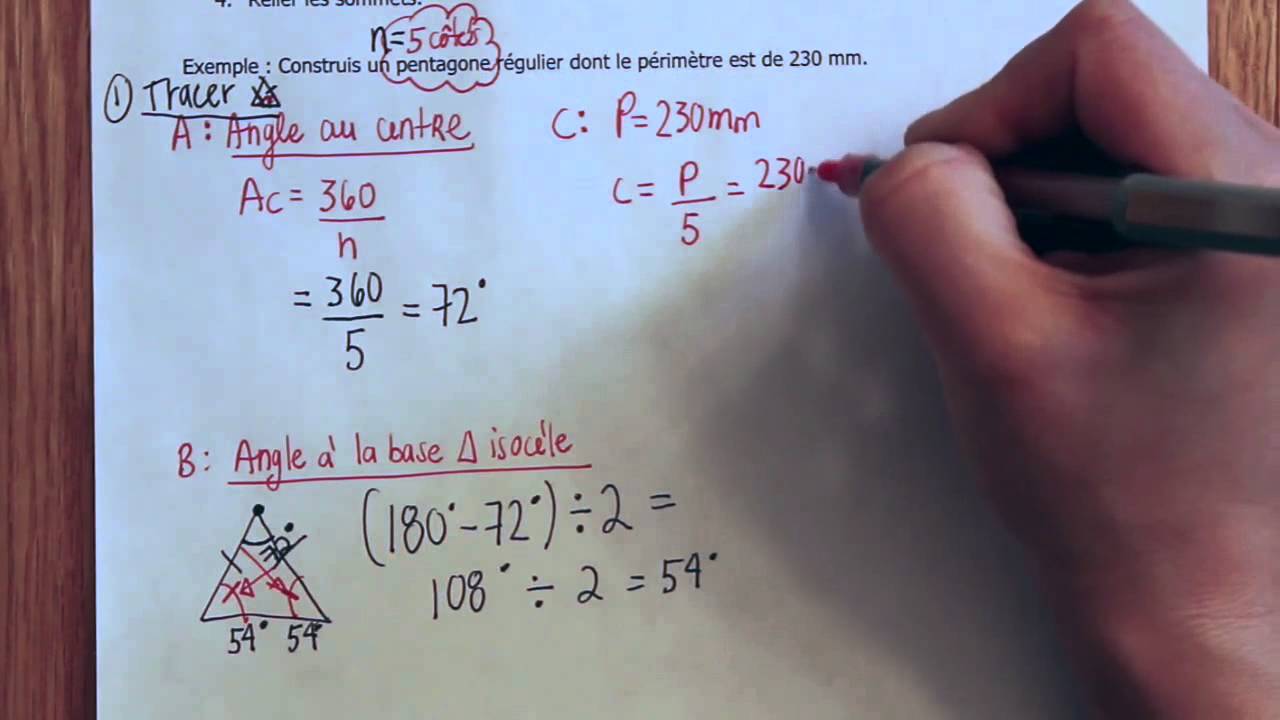 4. Relier les sommets.
n=5 côtés
Exemple : Construis un pentagone régulier dont le périmètre est de 230 mm.
① Tracer
A : Angle au centre
Ac = 360
n
= 360
5
= 72°
B : Angle à la base Δ isocèle
(180° - 72°) ÷ 2 =
108° ÷ 2 = 54°
54° 54°
C : P = 230 mm
C = P
5
= 230